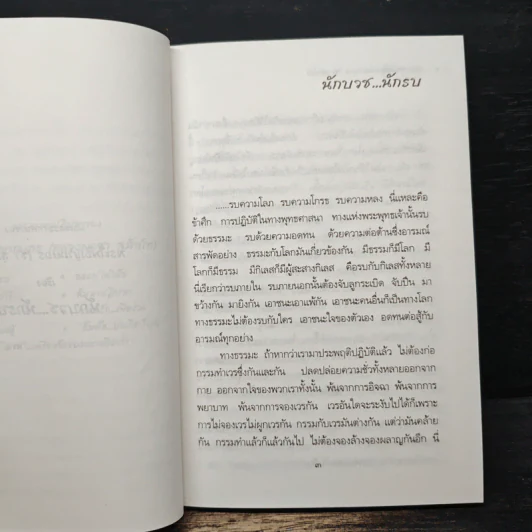 นักบวช...นักรบ
.....รบความโลภ รบความโกรธ รบความหลง นี่แหละคือ
ข้าศึก การปฏิบัติในทางพุทธศาสนา ทางแห่งพระพุทธเจ้านั้นรบ
ด้วยธรรมะ รบด้วยความอดทน ด้วยความต่อต้านซึ่งอารมณ์
สารพัดอย่าง ธรรมะกับโลกมันเกี่ยวข้องกัน มีธรรมก็มีโลก มี
โลกก็มีธรรม มีกิเลสก็มีผู้สะสางกิเลส คือรบกับกิเลสทั้งหลาย
นี่เรียกว่ารบภายใน รบภายนอกนั้นต้องจับลูกระเบิด จับปืน มา
ขว้างกัน มายิงกัน เอาชนะเอาแพ้กัน เอาชนะคนอื่นก็เป็นทางโลก
ทางธรรมะไม่ต้องรบกับใคร เอาชนะใจของตัวเอง อดทนต่อสู้กับ
อารมณ์ทุกอย่าง
ทางธรรมะ ถ้าหากว่าเรามาประพฤติปฏิบัติแล้ว ไม่ต้องก่อ
กรรมทำเวรซึ่งกันและกัน ปลดปล่อยความชั่วทั้งหลายออกจาก
กาย ออกจากใจของพวกเราทั้งนั้น พ้นจากการอิจฉา พ้นจากการ
พยาบาท พ้นจากการจองเวรกัน เวรอันใดจะระงับไปได้ก็เพราะ
การไม่จองเวรไม่ผูกเวรกัน กรรมกับเวรมันต่างกัน แต่ว่ามันคล้าย
กัน กรรมทำแล้วก็แล้วกันไป ไม่ต้องจองล้างจองผลาญกันอีก นี่
๓